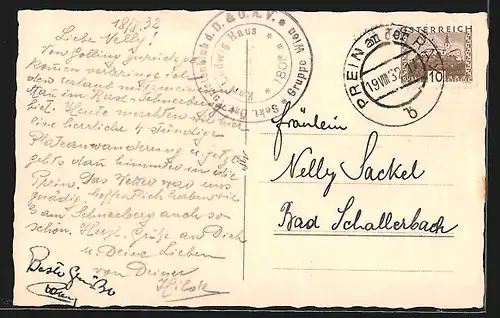 18/8.32
Liebe Nelly!
Von Golling zurückge-
kommen verbringe ich
den
im Rax-Schneeberg
biet. Heute machten wir
eine herrliche 4 stündige
Plateauwanderung u. jetzt
gehts dann hinunter in die
Prein. Das Wetter war uns
gnädig, hoffentlich haben wir
es am Schneeberg auch so
schön. Herzl. Grüße an Dich
u. Deine Lieben
von Deiner
Hilde
Beste Grüße
d. D. & Ö. A. V. Wien
Ludwig Haus
1804 m
Sekt. Gruppe
PREIN an der RAX
19.VIII.32
b
ÖSTERREICH
10
Fräulein
Nelly Sackel
Bad Schallerbach